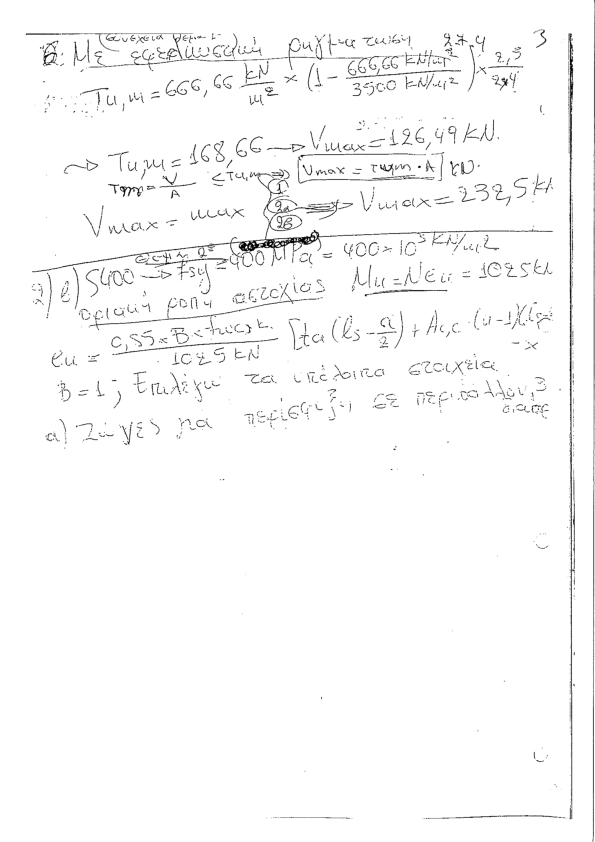 (συνέχεια θέμα 1)
β. Με εφελκυστική ρηγμάτωση 2.7.4 3
Tu,m = 666,66 kN/m² × (1 - 666,66 kN/m² / 3500 kN/m²) × 2,5 / 2,4
~> Tu,m = 168,66 → Vmax = 126,49 KN.
Tm = V/A ≤ Tu,m => Vmax = τu,m · A KN.
Vmax = max 1 2α 2β => Vmax = 232,5 kN
2) β) S400 → Fsy = 400 MPa = 400 × 10³ KN/m²
οριακή ροπή αστοχίας Mu = N eu = 1025 kN
eu = 0,85 × B × fwc,k / 1025 KN [ta (ls - a/2) + Ac,c · (n-1)
- x
B = 1 ; Επιλέγω τα υπόλοιπα στοιχεία
α) Ζώνες για περίσφιξη σε περιβάλλον 3